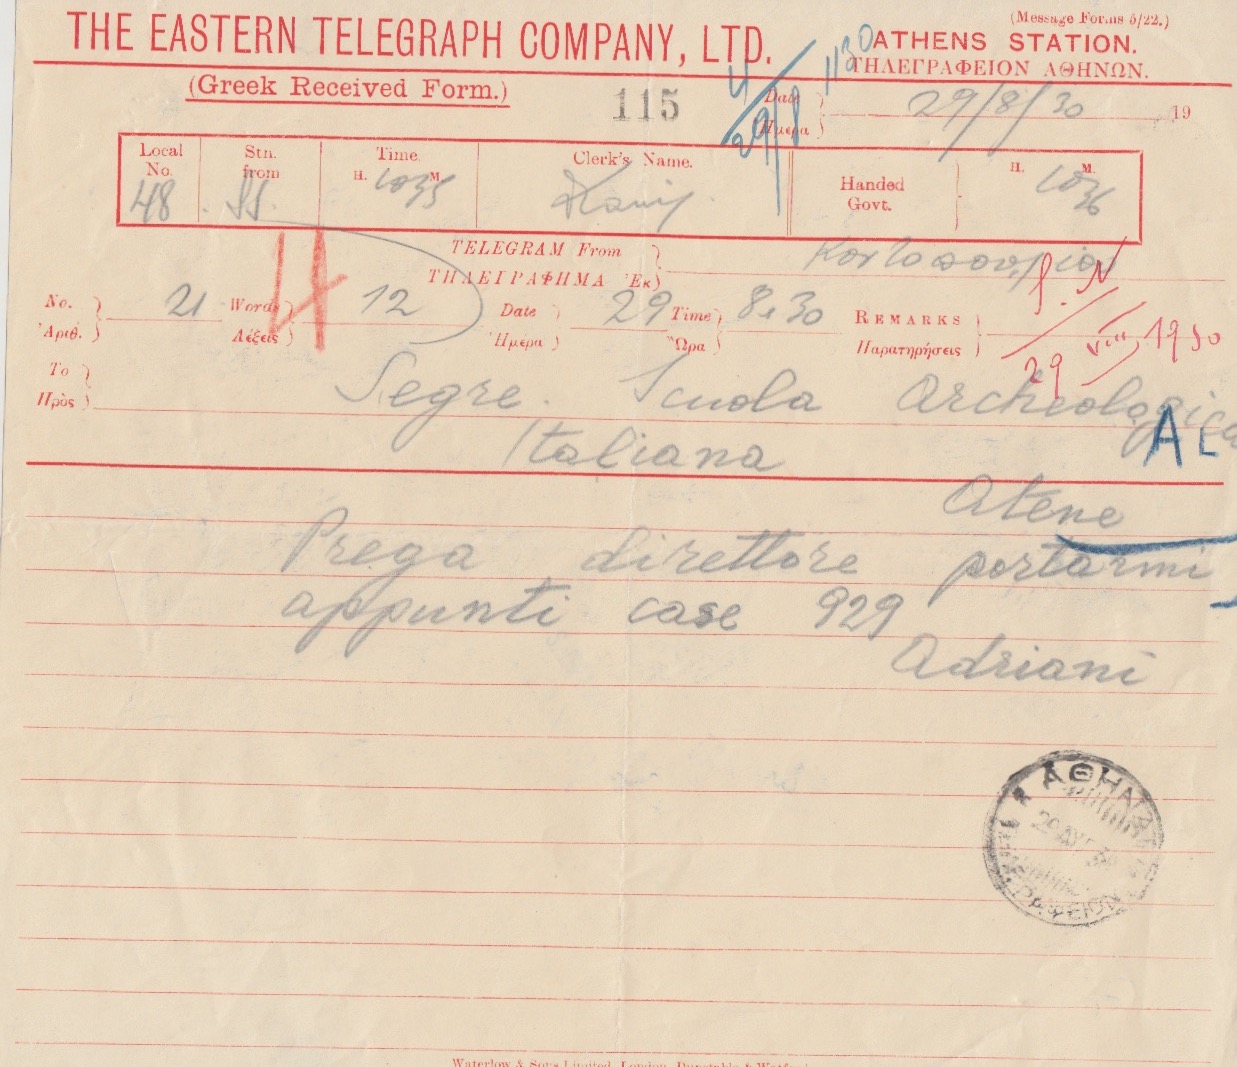 (Message Forms 5/22.)
THE EASTERN TELEGRAPH COMPANY, LTD.
ATHENS STATION.
ΤΗΛΕΓΡΑΦΕΙΟΝ ΑΘΗΝΩΝ.
(Greek Received Form.)
115
4/1130
29/8
Date
Ἡμέρα
29/8/30 19
Local No. Stn. from Time H. M. Clerk's Name. Handed Govt. H. M.
48 1035 1036
TELEGRAM From
ΤΗΛΕΓΡΑΦΗΜΑ Ἐκ
No. Ἀριθ. 21 Words Λέξεις 12 Date Ἡμέρα 29 Time Ὥρα 8.30 REMARKS Παρατηρήσεις
29 VIII 1930
To
Πρὸς
Segre. Scuola Archeologica
Italiana
Atene
Prega direttore portarmi
appunti case 929
Adriani
ΑΘΗΝΑΙ
29 ΑΥΓ 30
Waterlow & Sons Limited, London, Dunstable & Watford